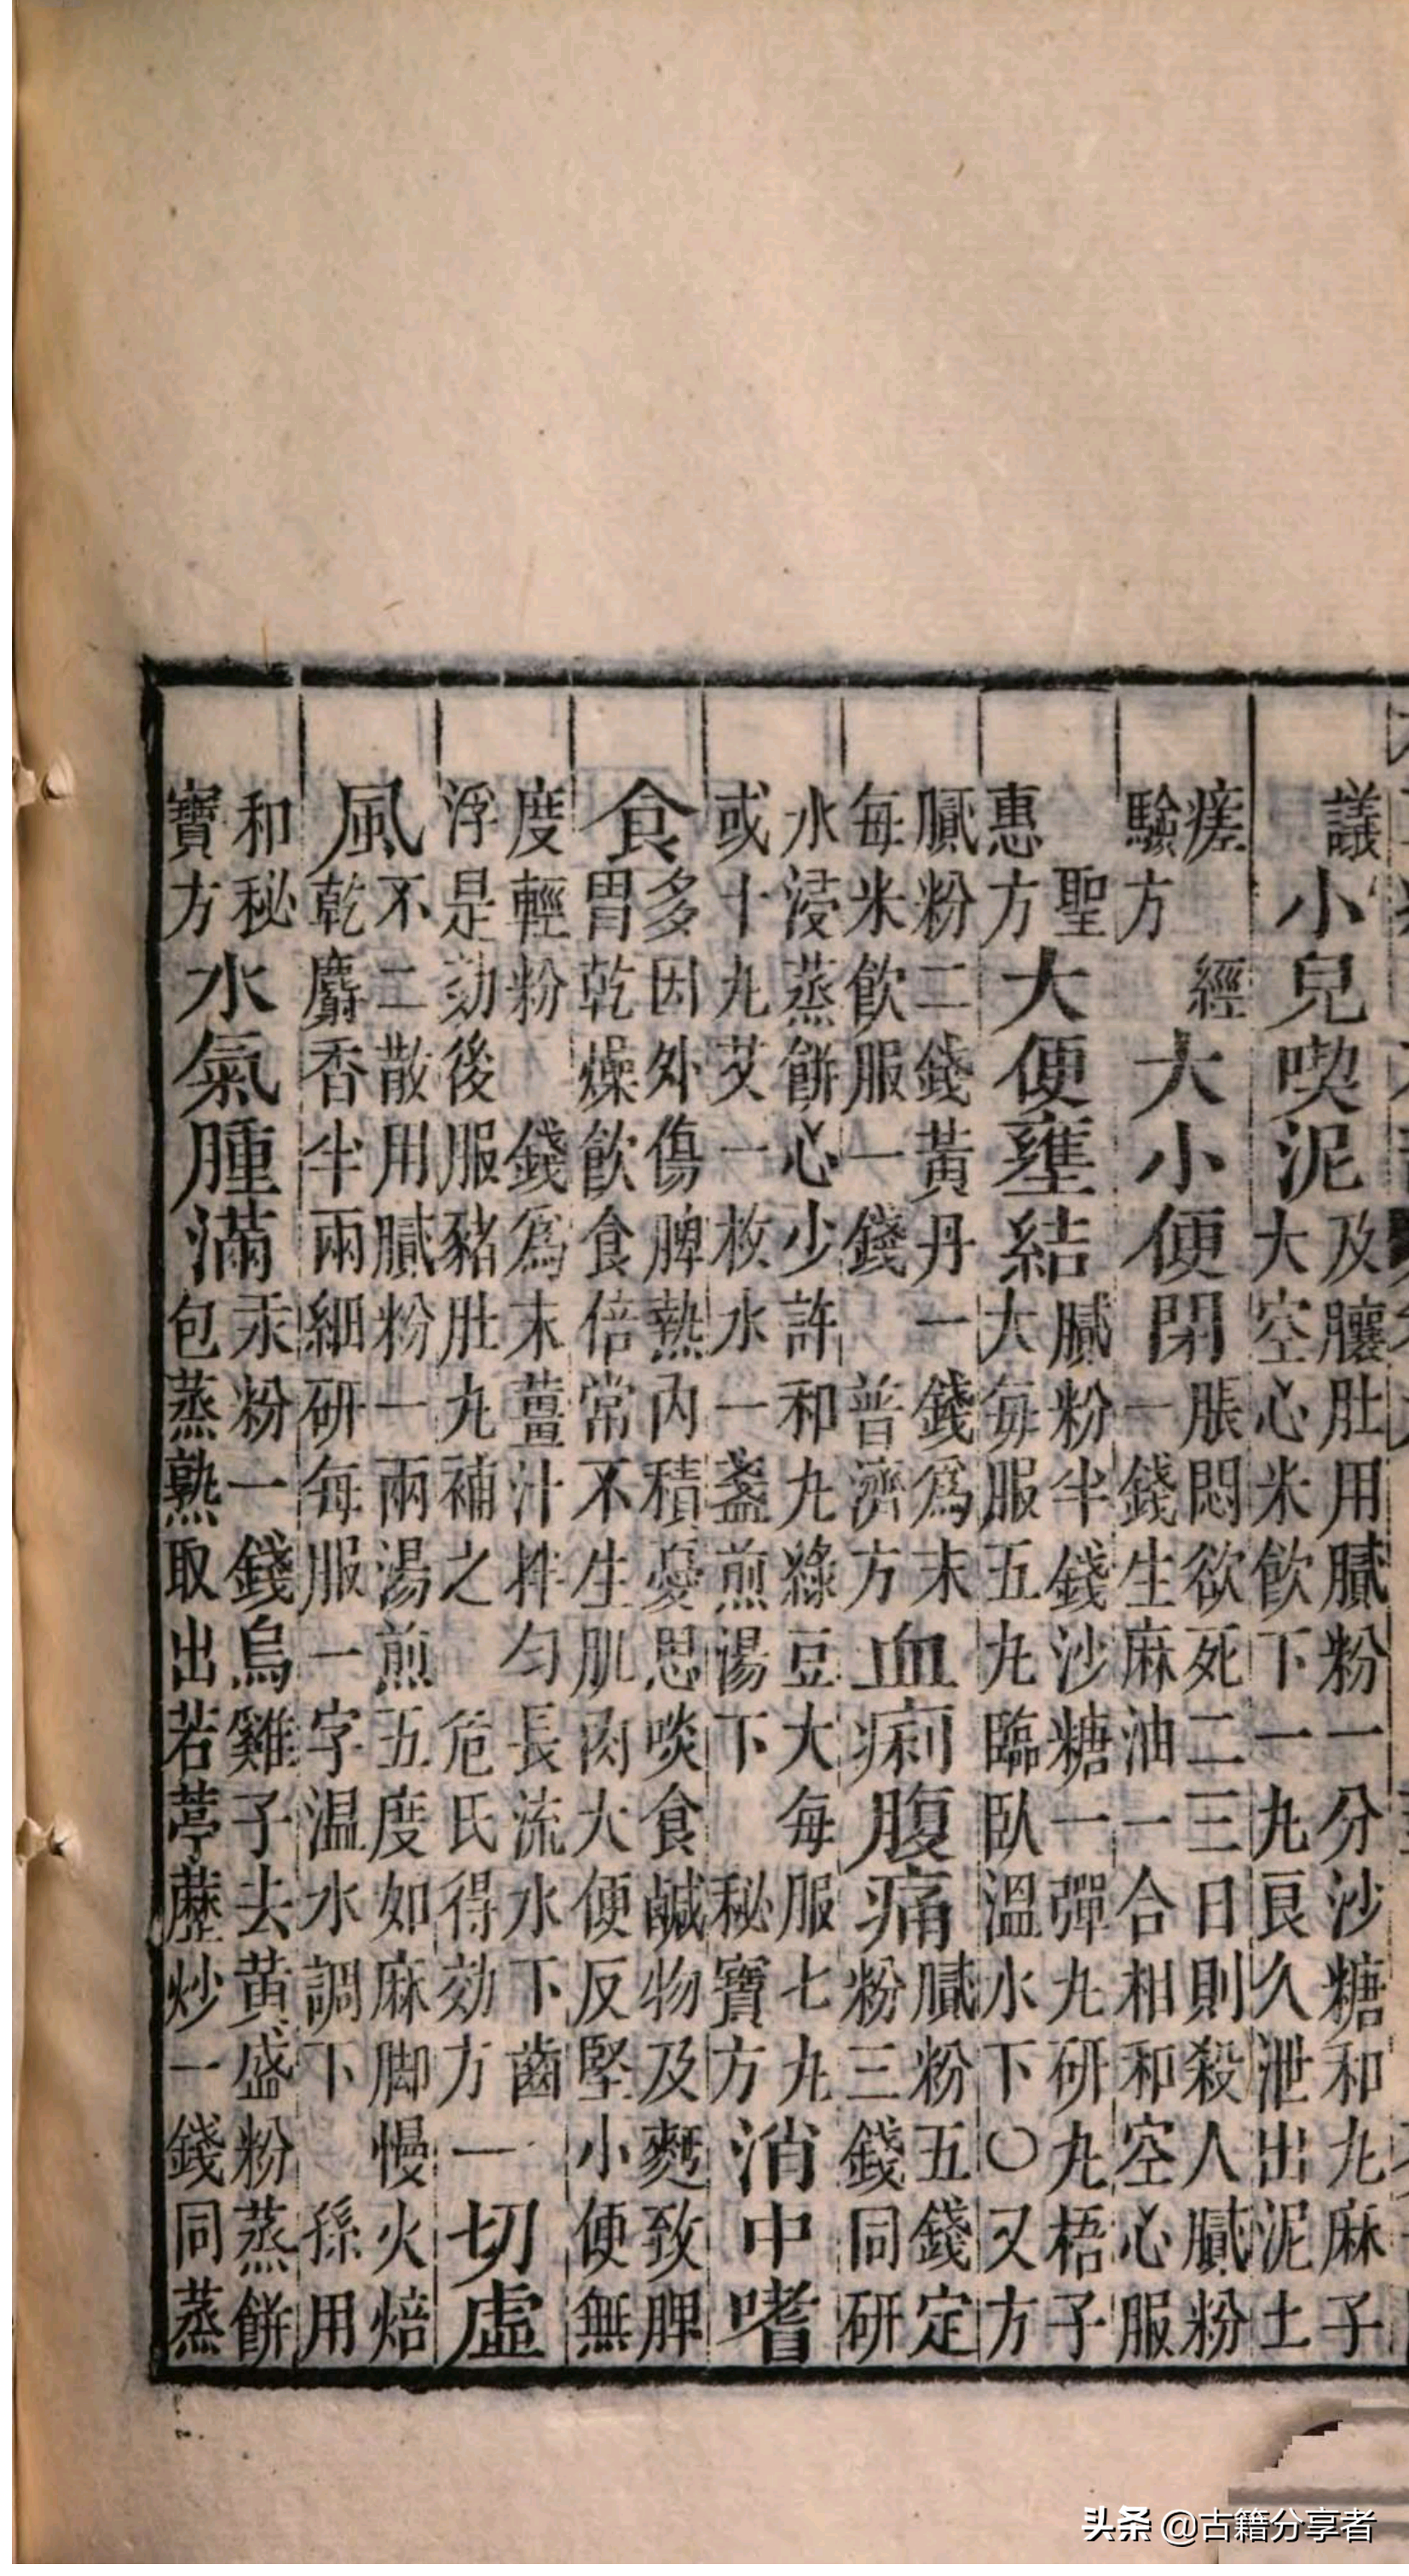 議
小兒喫泥
及臕肚用膩粉一分沙糖和丸麻子
大空心米飲下一丸良久泄出泥土
瘥經
驗方
大小便閉
脹悶欲死二三日則殺人膩粉
一錢生麻油一合相和空心服
聖
惠方
大便壅結
膩粉半錢沙糖一彈丸研丸梧子
大每服五丸臨臥溫水下〇又方
膩粉二錢黃丹一錢爲末
每米飲服一錢 普濟方
血痢腹痛
膩粉五錢定
粉三錢同研
水浸蒸餅心少許和丸綠豆大每服七丸
或十丸艾一枚水一盞煎湯下 秘寶方
消中嗜
食
多因外傷脾熱內積憂思啖食鹹物及麪致脾
胃乾燥飲食倍常不生肌肉大便反堅小便無
度輕粉 錢爲末薑汁拌勻長流水下齒
浮是効後服豬肚丸補之 危氏得効方
一切虛
風
不二散用膩粉一兩湯煎五度如麻脚慢火焙
乾麝香半兩細研每服一字温水調下 孫用
和秘
寶方
水氣腫滿
汞粉一錢烏雞子去黃盛粉蒸餅
包蒸熟取出若葶藶炒一錢同蒸
头条 @古籍分享者